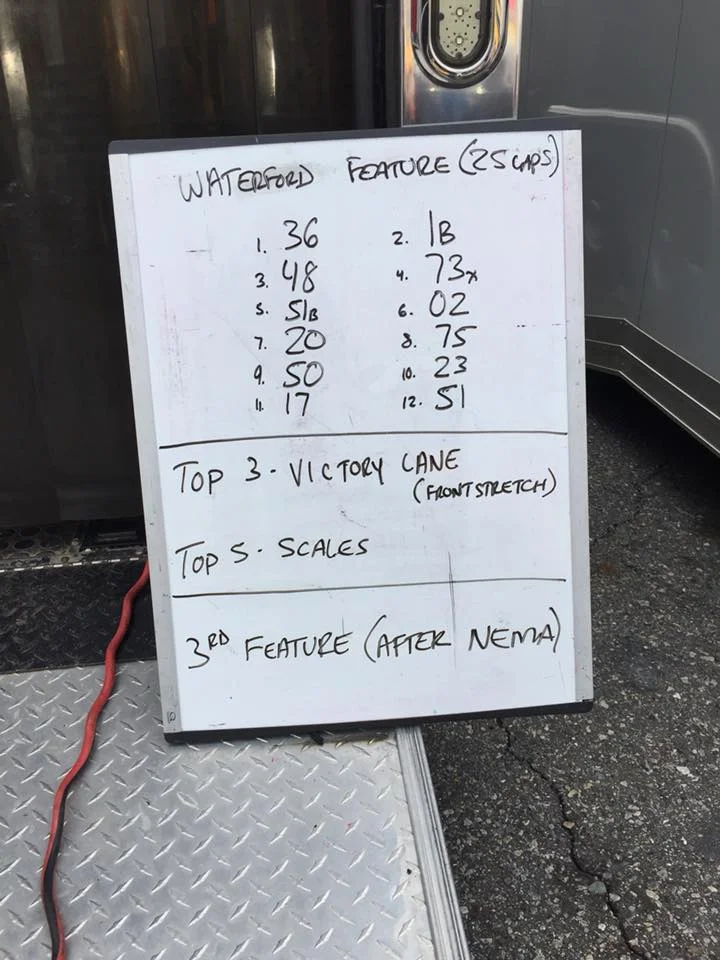 WATERFORD FEATURE (25 LAPS)
1. 36 2. 1B
3. 48 4. 73x
5. 51B 6. 02
7. 20 8. 75
9. 50 10. 23
11. 17 12. 51
TOP 3 - VICTORY LANE
(FRONTSTRETCH)
TOP 5 - SCALES
3RD FEATURE (AFTER NEMA)